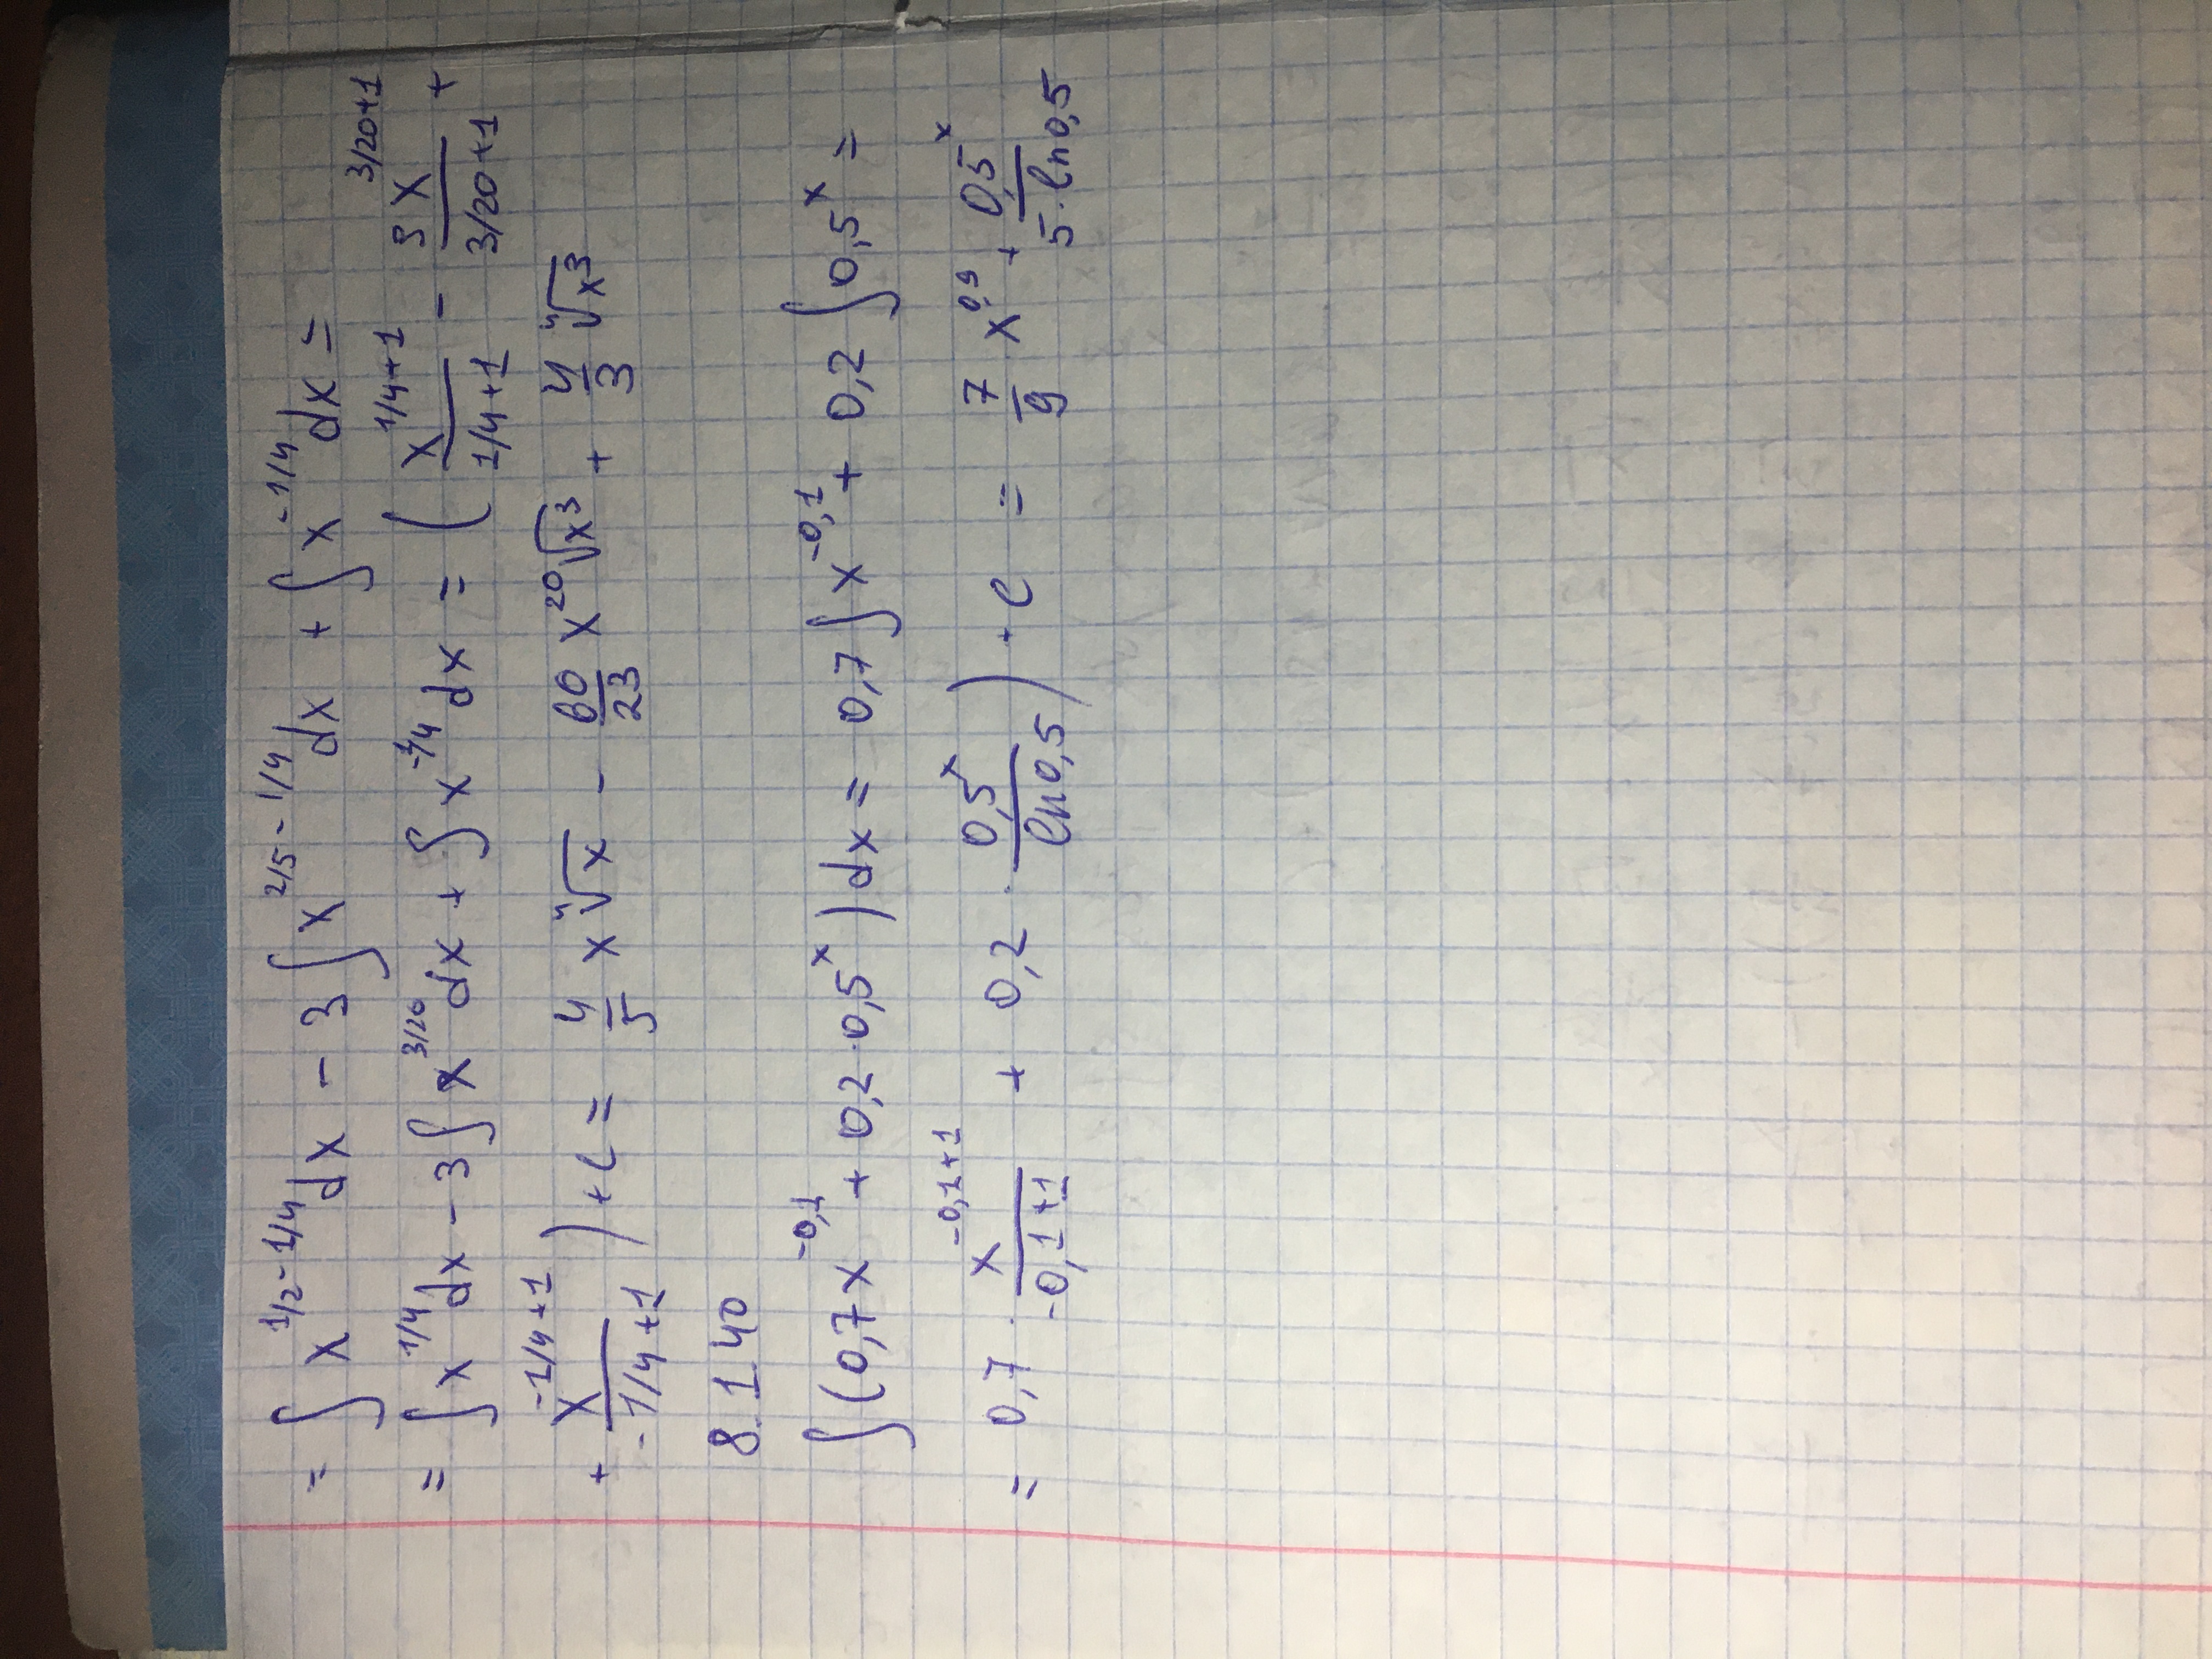 = ∫ x^{1/2 - 1/4} dx - 3 ∫ x^{2/5 - 1/4} dx + ∫ x^{-1/4} dx =
= ∫ x^{1/4} dx - 3 ∫ x^{3/20} dx + ∫ x^{-1/4} dx = ( \frac{x^{1/4+1}}{1/4+1} - \frac{3x^{3/20+1}}{3/20+1} +
+ \frac{x^{-1/4+1}}{-1/4+1} ) + c = \frac{4}{5} x \sqrt[4]{x} - \frac{60}{23} x \sqrt[20]{x^3} + \frac{4}{3} \sqrt[4]{x^3}
8.1.40
∫ (0,7x^{-0,1} + 0,2 · 0,5^x) dx = 0,7 ∫ x^{-0,1} + 0,2 ∫ 0,5^x =
= 0,7 · \frac{x^{-0,1+1}}{-0,1+1} + 0,2 · \frac{0,5^x}{ln 0,5} ) + c = \frac{7}{9} x^{0,9} + \frac{0,5^x}{5 · ln 0,5}